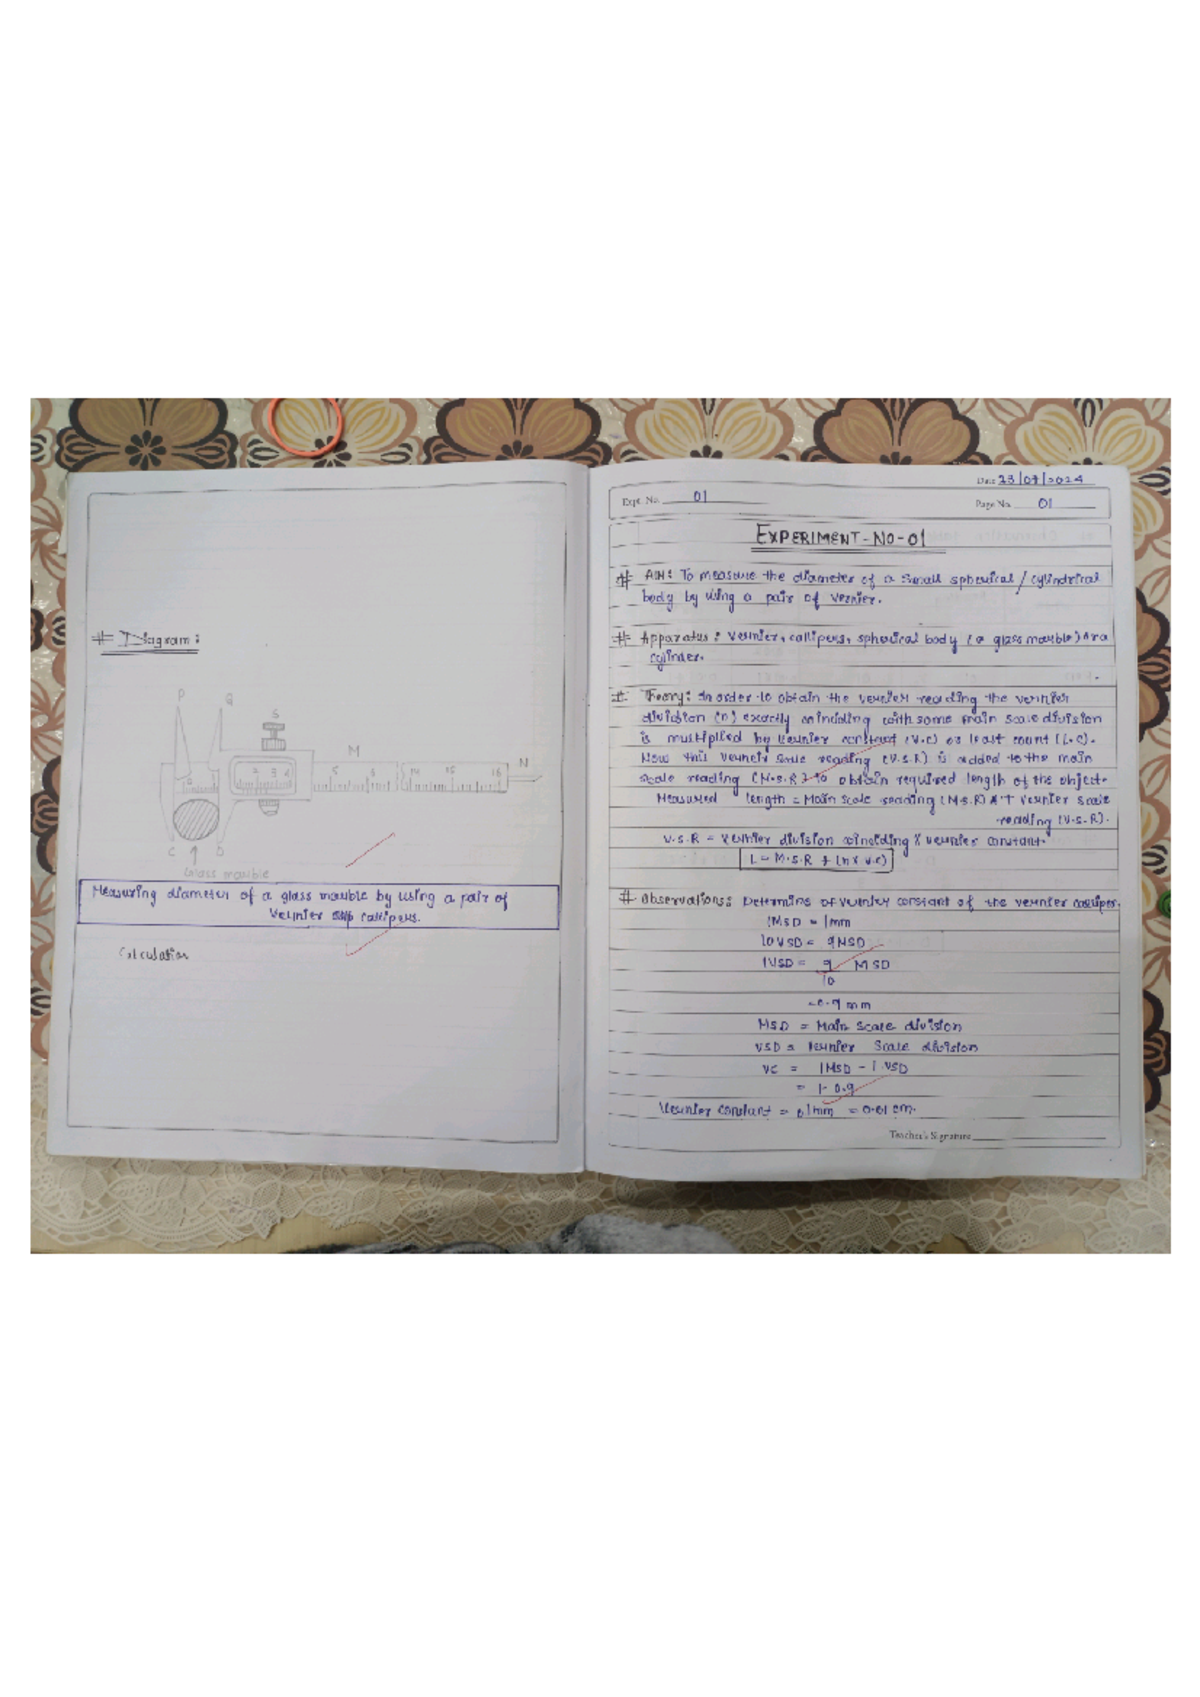 # Diagram:
P
Q
S
M
N
C
D
Glass marble
Measuring diameter of a glass marble by using a pair of
Vernier callipers.
Calculation
Date 23/07/2024
Expt. No. 01
Page No. 01
EXPERIMENT-NO-01
# AIM: To measure the diameter of a small spherical/cylindrical
body by using a pair of vernier.
# Apparatus: Vernier, callipers, spherical body (a glass marble) or a
cylinder.
# Theory: In order to obtain the vernier reading the vernier
division (n) exactly coinciding with some main scale division
is multiplied by vernier constant (V.C) or least count (L.C).
Now this vernier scale reading (V.S.R) is added to the main
scale reading (M.S.R) to obtain required length of the object.
Measured length = Main scale reading (M.S.R) + Vernier scale
reading (V.S.R).
V.S.R = Vernier division coinciding x vernier constant.
L = M.S.R + (n x v.c)
# Observations: Determine of vernier constant of the vernier callipers.
1MSD = 1mm
10VSD = 9MSD
1VSD = 9 MSD
10
=0.9 mm
MSD = Main scale division
VSD = Vernier Scale division
VC = 1MSD - 1VSD
= 1-0.9
Vernier constant = 0.1mm = 0.01 cm.
Teacher's Signature